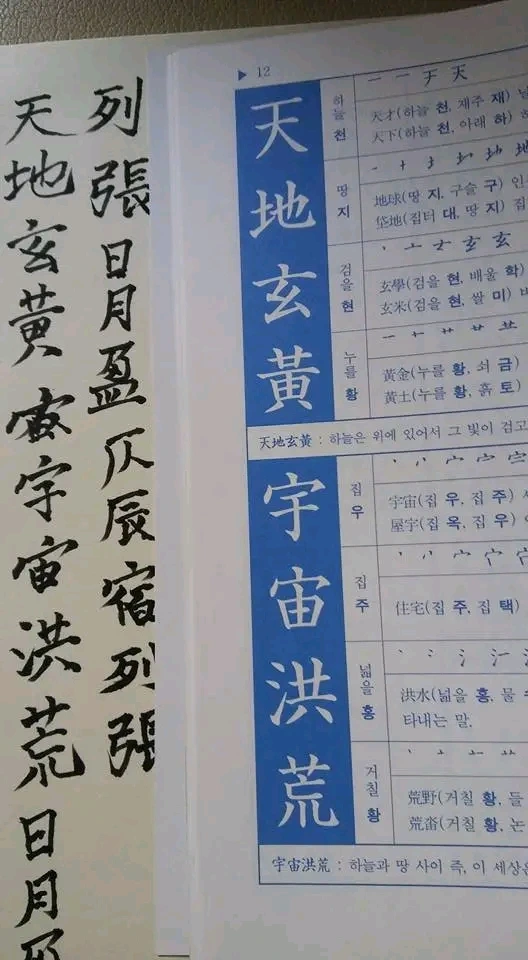 天地玄黃宇宙洪荒日月
列張日月盈仄辰宿列張
▶ 12
天
하늘 천
一 二 于 天
天才(하늘 천, 재주 재)
天下(하늘 천, 아래 하)
地
땅 지
地球(땅 지, 구슬 구) 인
垈地(집터 대, 땅 지) 집
玄
검을 현
玄學(검을 현, 배울 학)
玄米(검을 현, 쌀 미)
黃
누를 황
黃金(누를 황, 쇠 금)
黃土(누를 황, 흙 토)
天地玄黃 : 하늘은 위에 있어서 그 빛이 검고
宇
집 우
宇宙(집 우, 집 주)
屋宇(집 옥, 집 우)
宙
집 주
住宅(집 주, 집 택)
洪
넓을 홍
洪水(넓을 홍, 물
타내는 말.
荒
거칠 황
荒野(거칠 황, 들
荒畓(거칠 황, 논
宇宙洪荒 : 하늘과 땅 사이 즉, 이 세상은